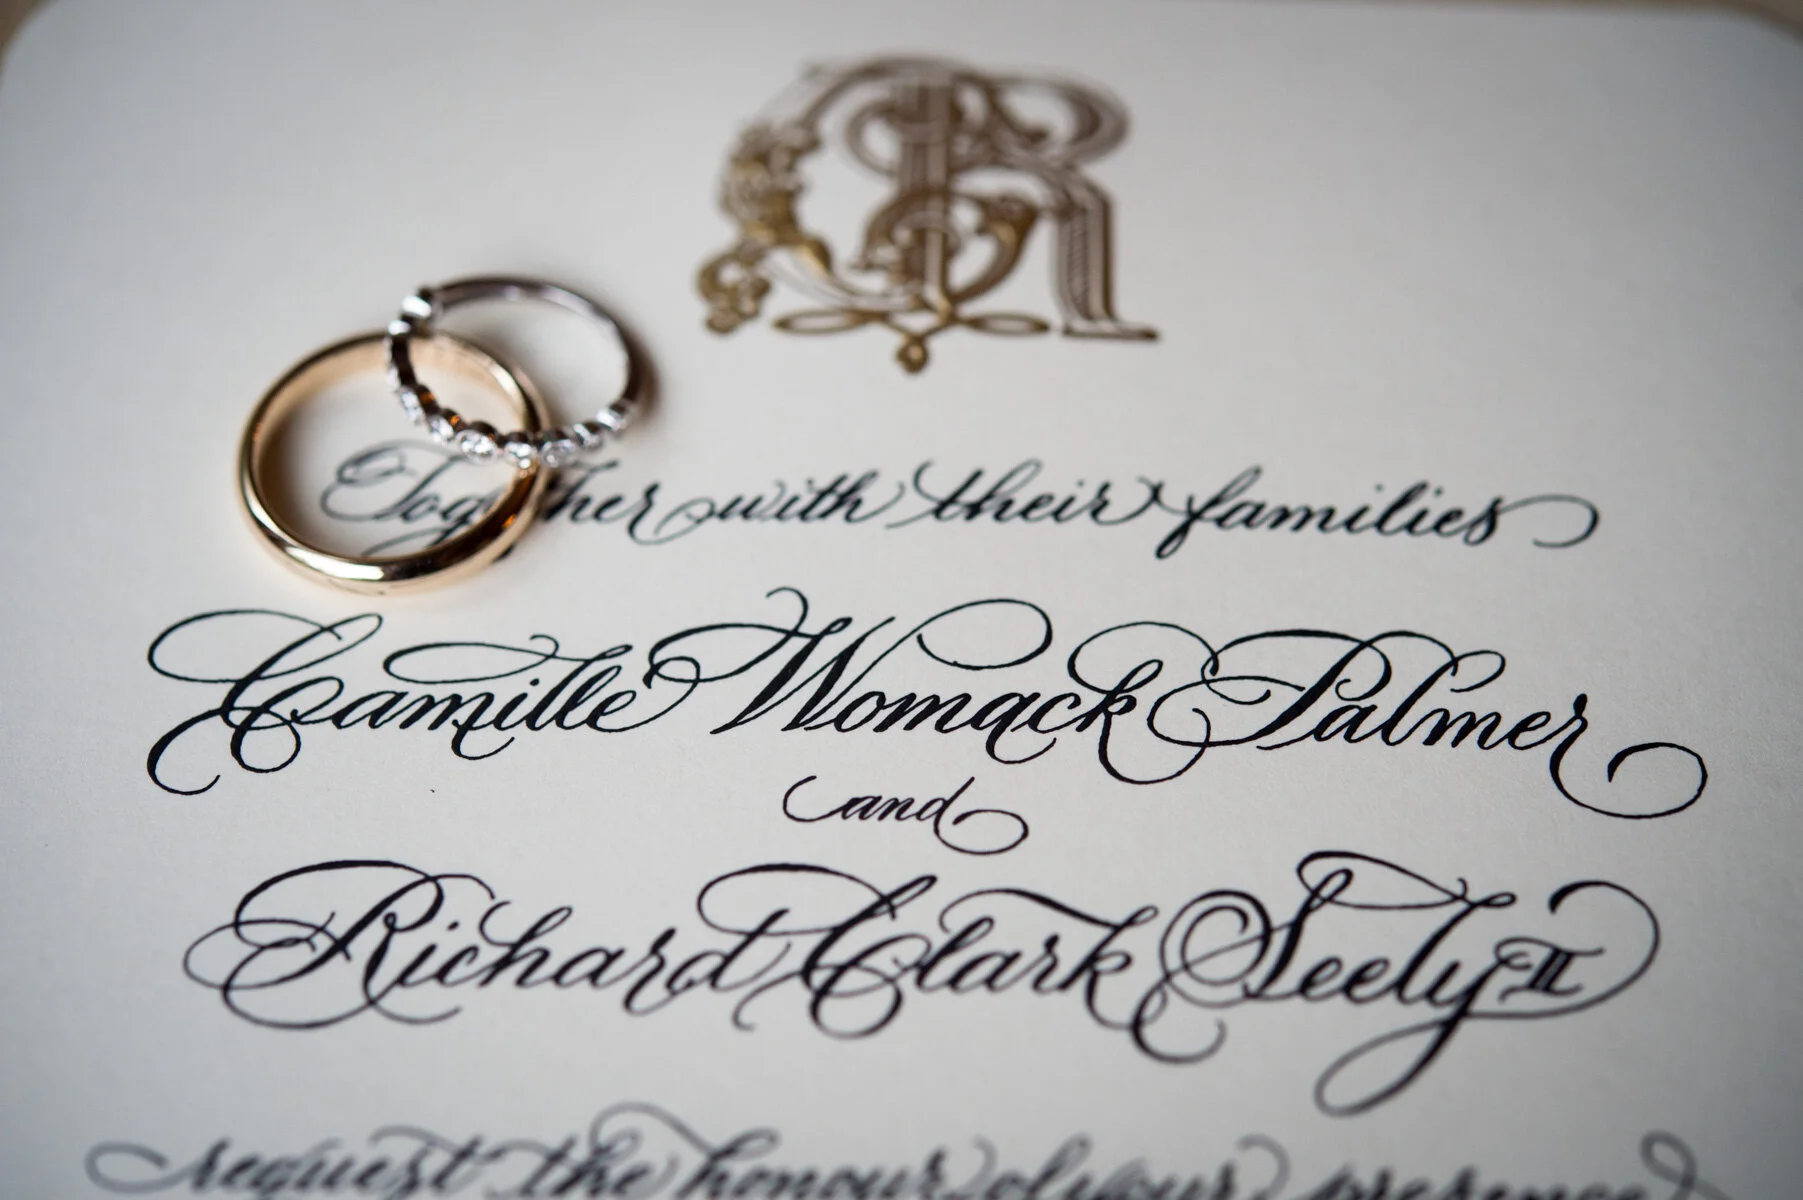 CR
Together with their families
Camille Womack Palmer
and
Richard Clark Seely II
request the honour of your presence